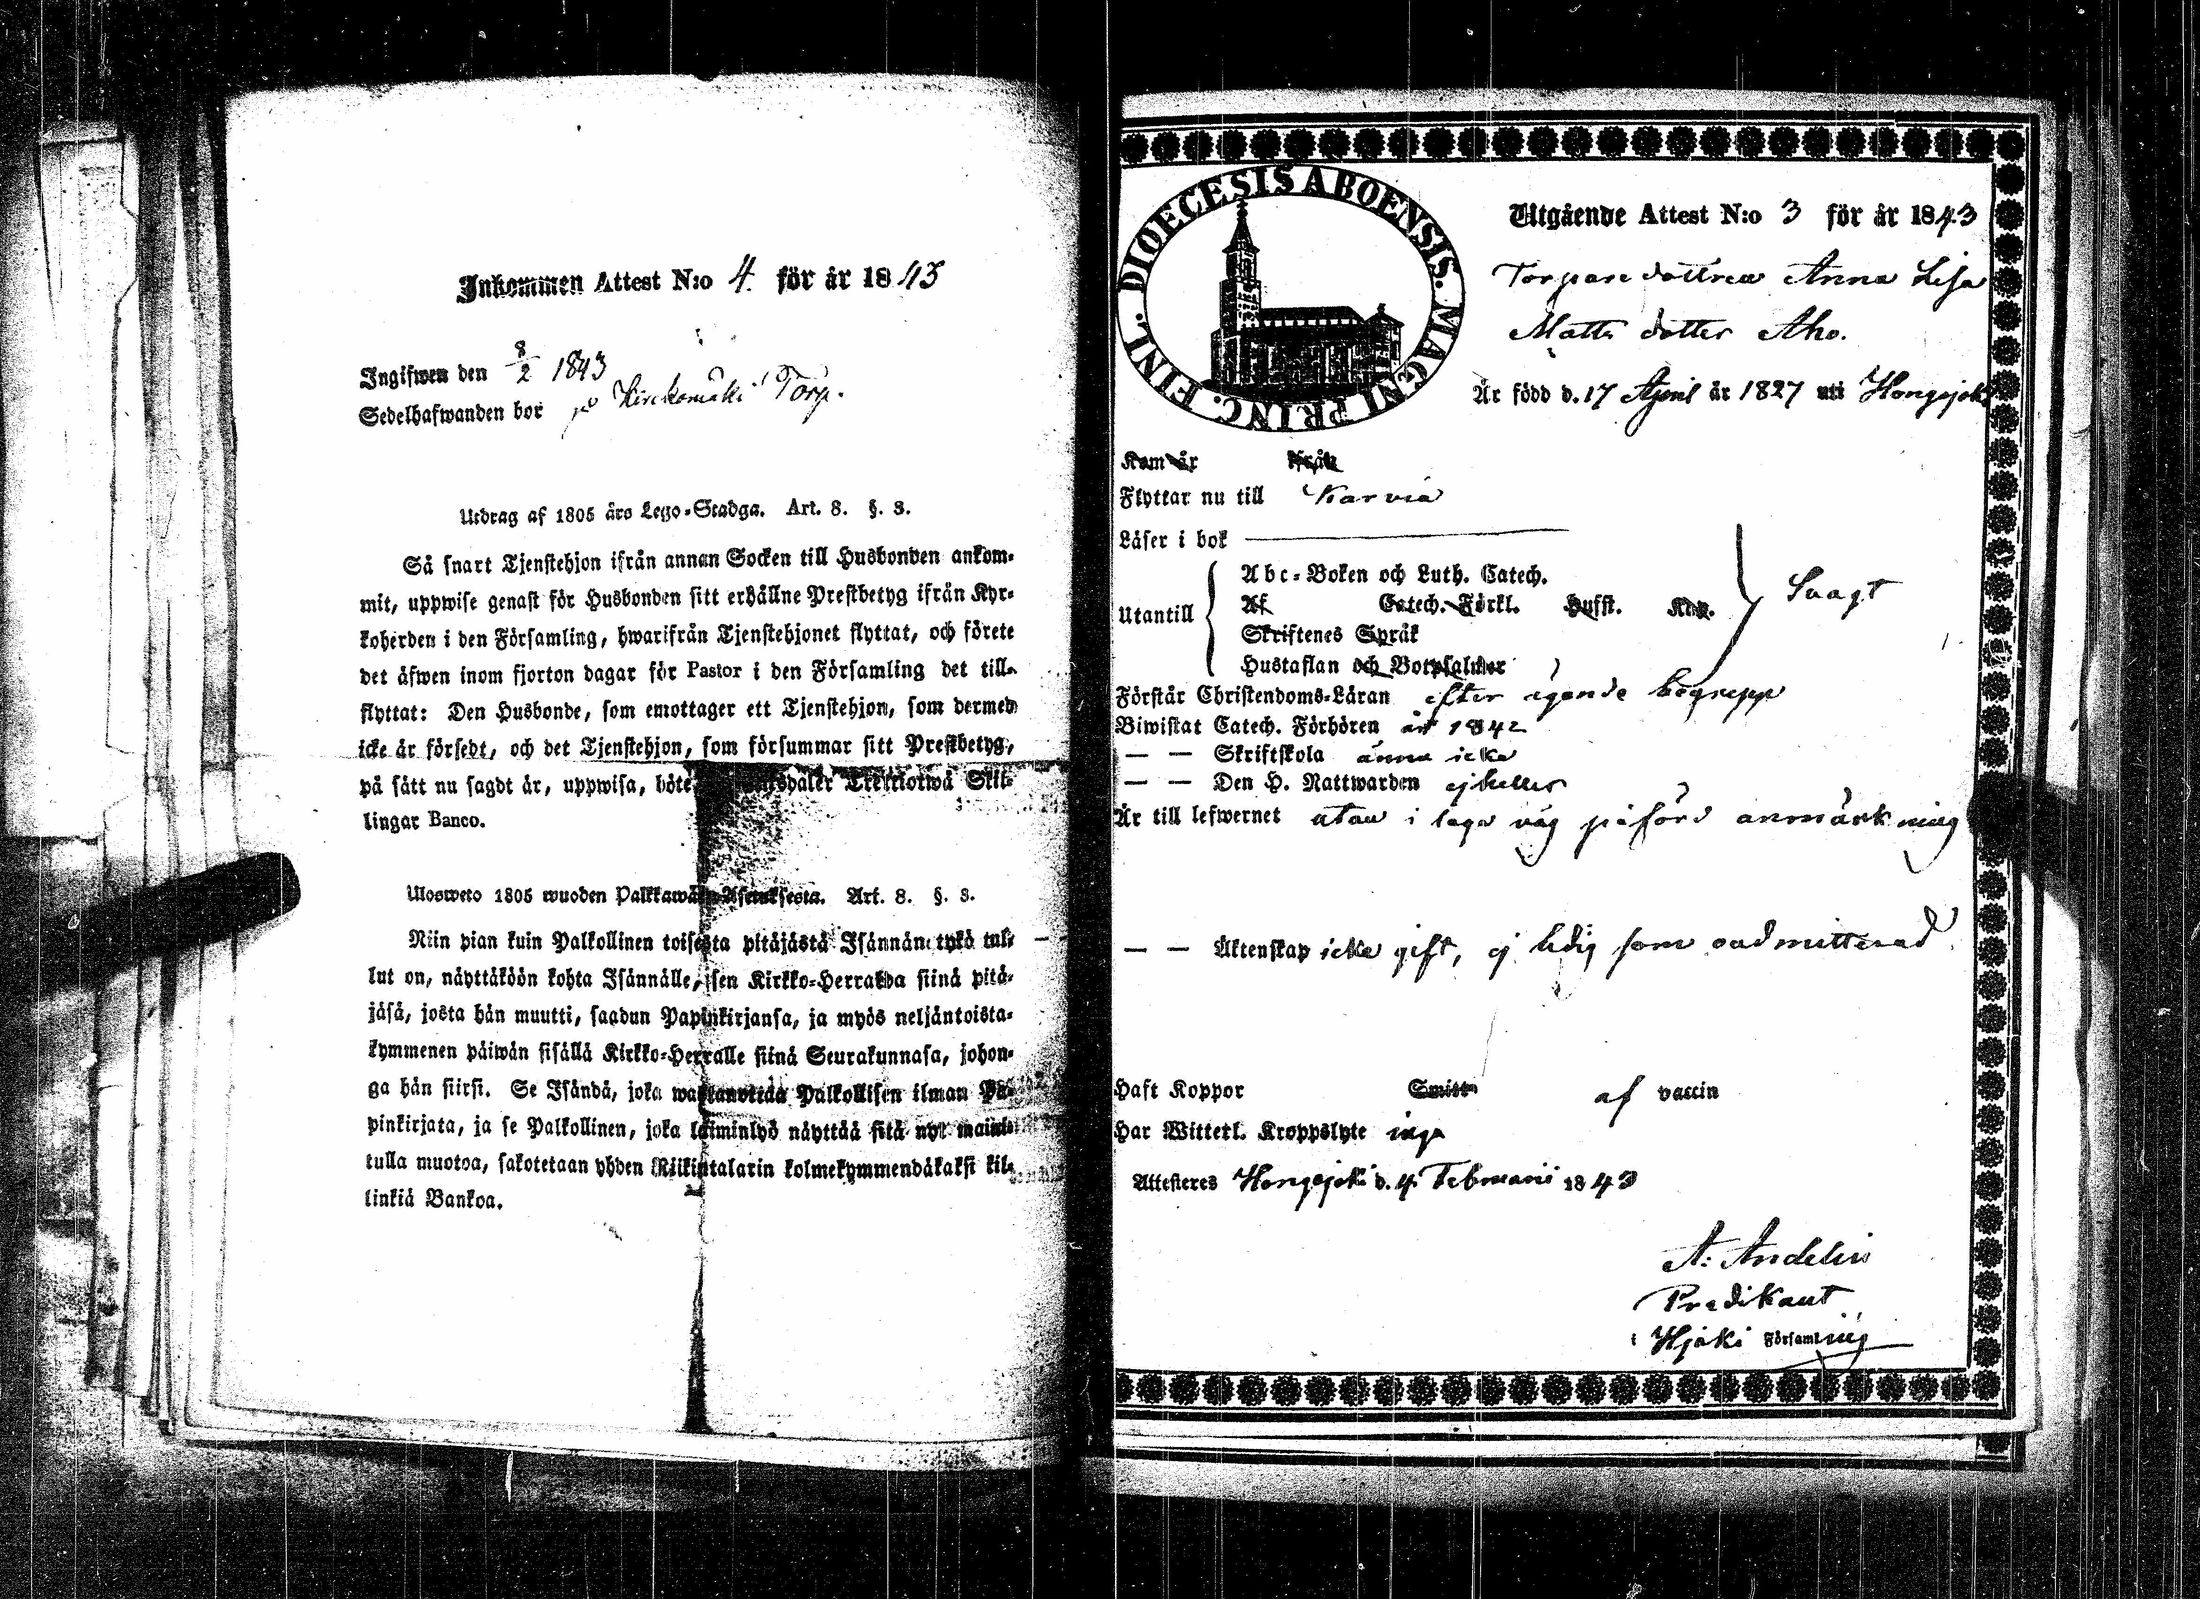 Inkommen Attest N:o 4 för år 1843
Ingifwen den 8/2 1843
Sedelhafwanden bor på Kirckomäki Torp.
Utdrag af 1805 års Lego-Stadga. Art. 8. §. 3.
Så snart Tjenstehjon ifrån annan Socken till Husbonden ankom-
mit, uppwise genast för Husbonden sitt erhållne Prestbetyg ifrån Kyr-
koherden i den Församling, hwarifrån Tjenstehjonet flyttat, och förete
det äfwen inom fjorton dagar för Pastor i den Församling det till-
flyttat: Den Husbonde, som emottager ett Tjenstehjon, som dermed
icke är försedt, och det Tjenstehjon, som försummar sitt Prestbetyg,
på sätt nu sagdt är, uppwisa, böte Trettiotwå Skil-
lingar Banco.
Ulosweto 1805 wuoden Palkkawäen-Asetuksesta. Art. 8. §. 3.
Niin pian kuin Palkollinen toisesta pitäjästä Isännän tykö tul-
lut on, näyttäköön kohta Isännälle, sen Kirkko-Herralda siinä pitä-
jäsä, josta hän muutti, saadun Papinkirjansa, ja myös neljäntoista-
kymmenen päiwän sisällä Kirkko-Herralle siinä Seurakunnasa, johon-
ga hän siirsi. Se Isändä, joka wastanottaa Palkollisen ilman Pa-
pinkirjata, ja se Palkollinen, joka laiminlyö näyttää sitä nyt mainit-
tulla muotoa, sakotetaan yhden Riikintalarin kolmekymmendäkaksi kil-
linkiä Bankoa.
DIOECESIS ABOENSIS. MAGNI PRINC. FINL.
Utgående Attest N:o 3 för år 1843
Torpare dottren Anna Lisa
Matts dotter Aho.
Är född d. 17 April år 1827 uti Hongojoki
Kom år ifrån
Flyttar nu till Karvia
Läser i bok
Utantill
Abc-Boken och Luth. Catech.
Af Catech. Förkl. Husst. Krp.
Skriftenes Språk
Hustaflan och Botpsalmer
Svagt
Förstår Christendoms-Läran efter ägande begrepp
Biwistat Catech. Förhören år 1842
— — Skriftskola ännu icke
— — Den H. Nattwarden ej heller
Är till lefwernet utan i laga väg påförd anmärkning
— — Äktenskap icke gift, ej ledig som oadmitterad
Haft Koppor Smitt af vaccin
Har Witterl. Kroppslyte inga
Attesteres Hongojoki d. 4 Februarii 1843
A: Andelin
Predikant
i Hjoki Församling